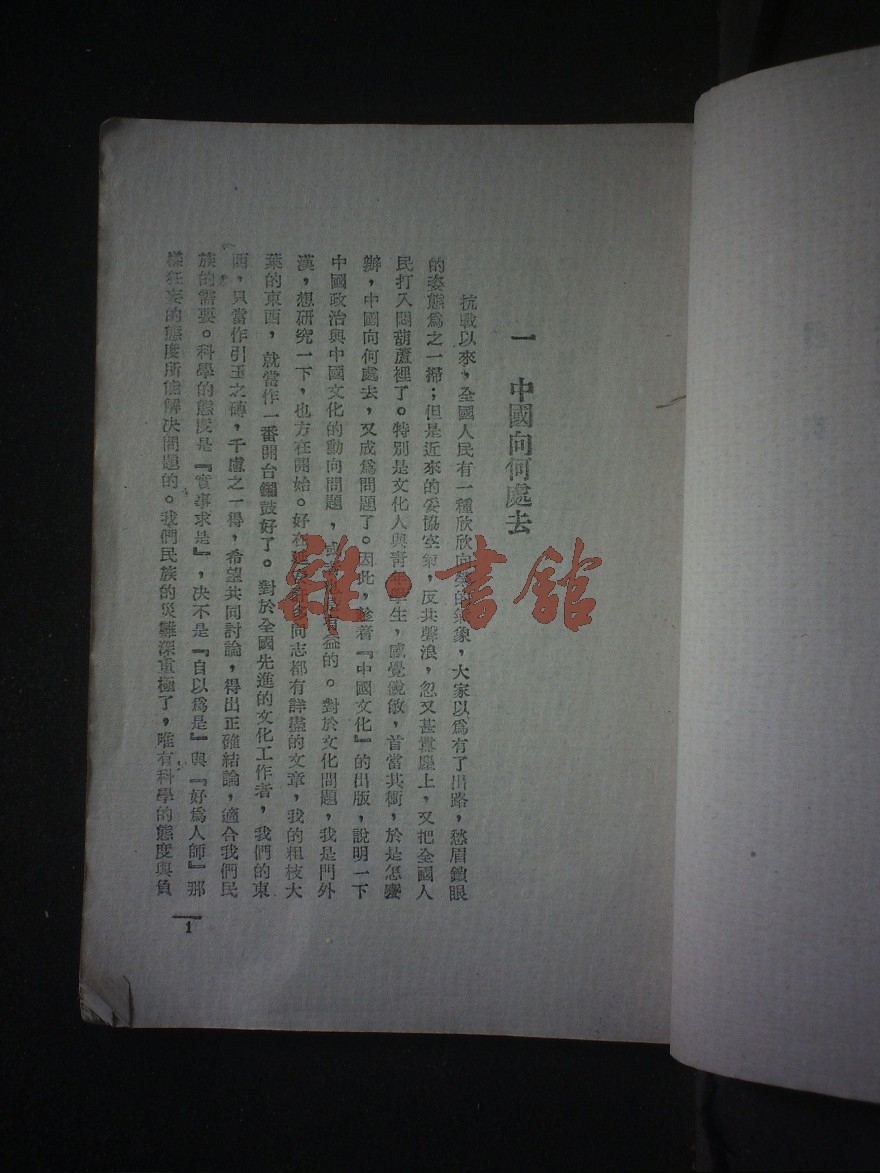 一　中國向何處去
抗戰以來，全國人民有一種欣欣向榮的氣象，大家以爲有了出路，愁眉鎖眼
的姿態爲之一掃；但是近來的妥協空氣，反共聲浪，忽又甚囂塵上，又把全國人
民打入悶葫蘆裡了。特別是文化人與靑年學生，感覺銳敏，首當其衝，於是怎麼
辦，中國向何處去，又成爲問題了。因此，趁着『中國文化』的出版，說明一下
中國政治與中國文化的動向問題，或 有益的。對於文化問題，我是門外
漢，想研究一下，也方在開始。好在 同志都有詳盡的文章，我的粗枝大
葉的東西，就當作一番開台鑼鼓好了。對於全國先進的文化工作者，我們的東
西，只當作引玉之磚，千慮之一得，希望共同討論，得出正確結論，適合我們民
族的需要。科學的態度是『實事求是』，決不是『自以爲是』與『好爲人師』那
樣狂妄的態度所能解決問題的。我們民族的災難深重極了，唯有科學的態度與負
1
雜·書館